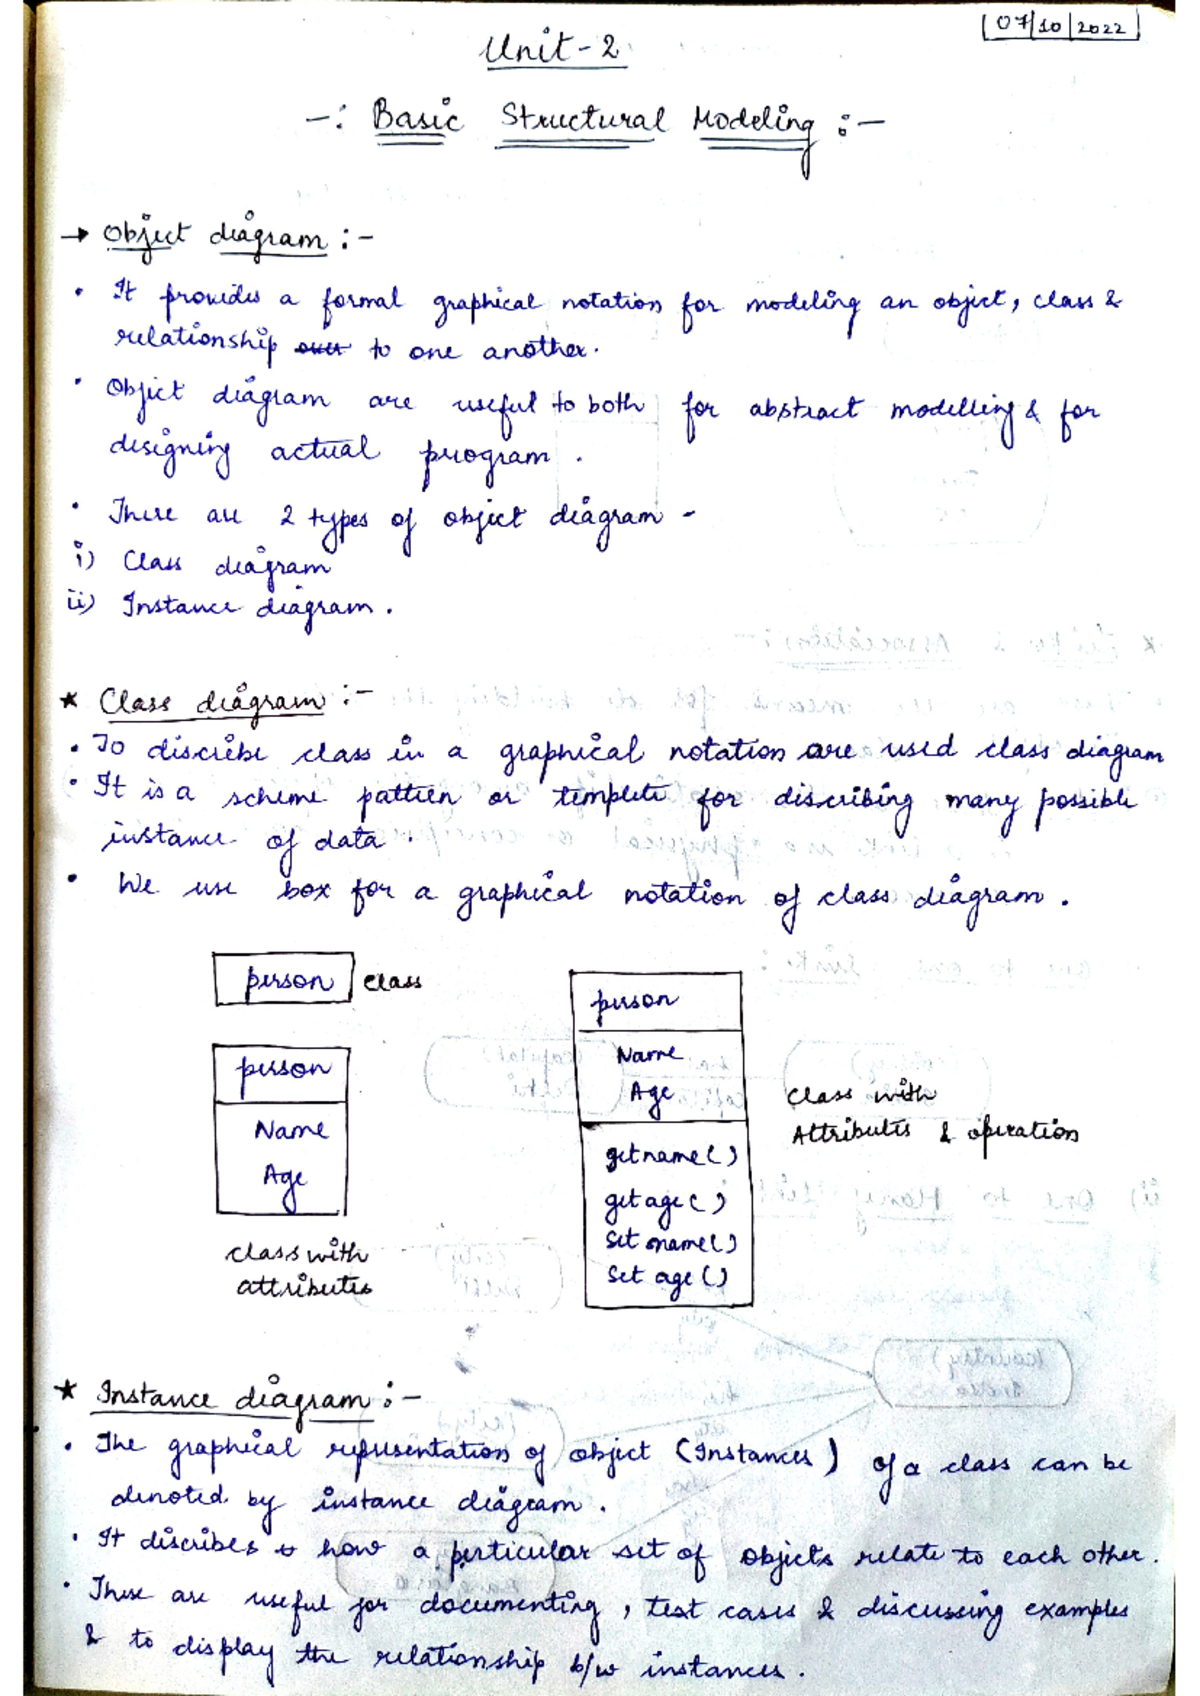 07/10/2022
Unit-2
-: Basic Structural Modeling :-
→ Object diagram :-
• It provides a formal graphical notation for modeling an object, class &
relationship over to one another.
• Object diagram are useful to both for abstract modelling & for
designing actual program.
• There are 2 types of object diagram -
i) Class diagram
ii) Instance diagram.
* Class diagram :-
• To discribe class in a graphical notation are used class diagram
• It is a scheme pattern or templete for discribing many possible
instance of data.
• We use box for a graphical notation of class diagram.
person class
person
Name
Age
class with
attributes
person
Name
Age
getname()
getage()
Set name()
Set age()
Class with
Attributes & operation
* Instance diagram :-
• The graphical representation of object (Instances) of a class can be
denoted by instance diagram.
• It discribes how a perticular set of objects relate to each other.
• These are useful for documenting, test cases & discussing examples
& to display the relationship b/w instances.